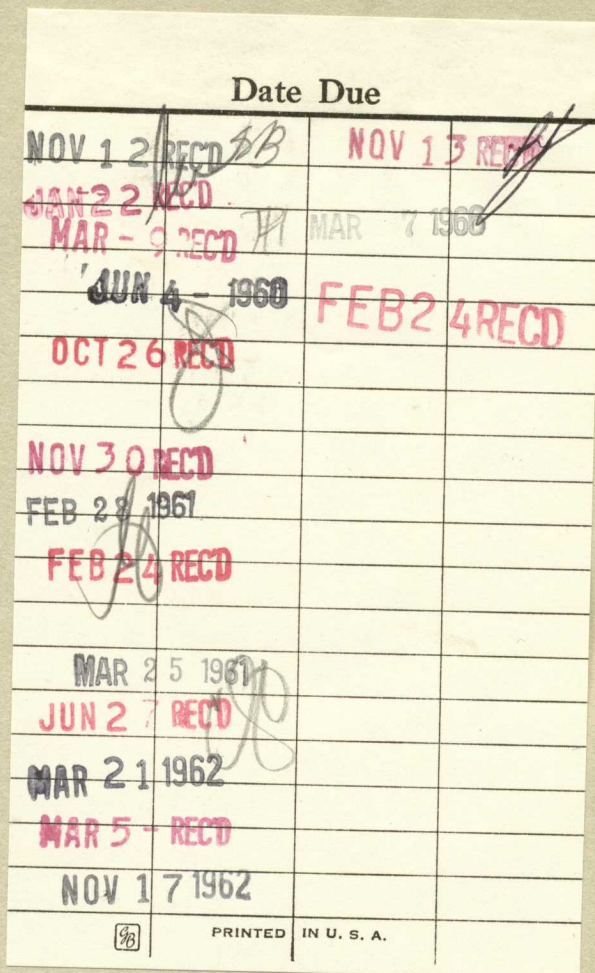 Date Due
NOV 12 REC'D
JAN 22 REC'D
MAR - 9 REC'D
JUN 4 - 1960
OCT 26 REC'D
NOV 30 REC'D
FEB 28 1961
FEB 24 REC'D
MAR 25 1961
JUN 27 REC'D
MAR 21 1962
MAR 5 - REC'D
NOV 17 1962
NOV 13 REC'D
MAR 7 1960
FEB 24 RECD
PRINTED IN U. S. A.